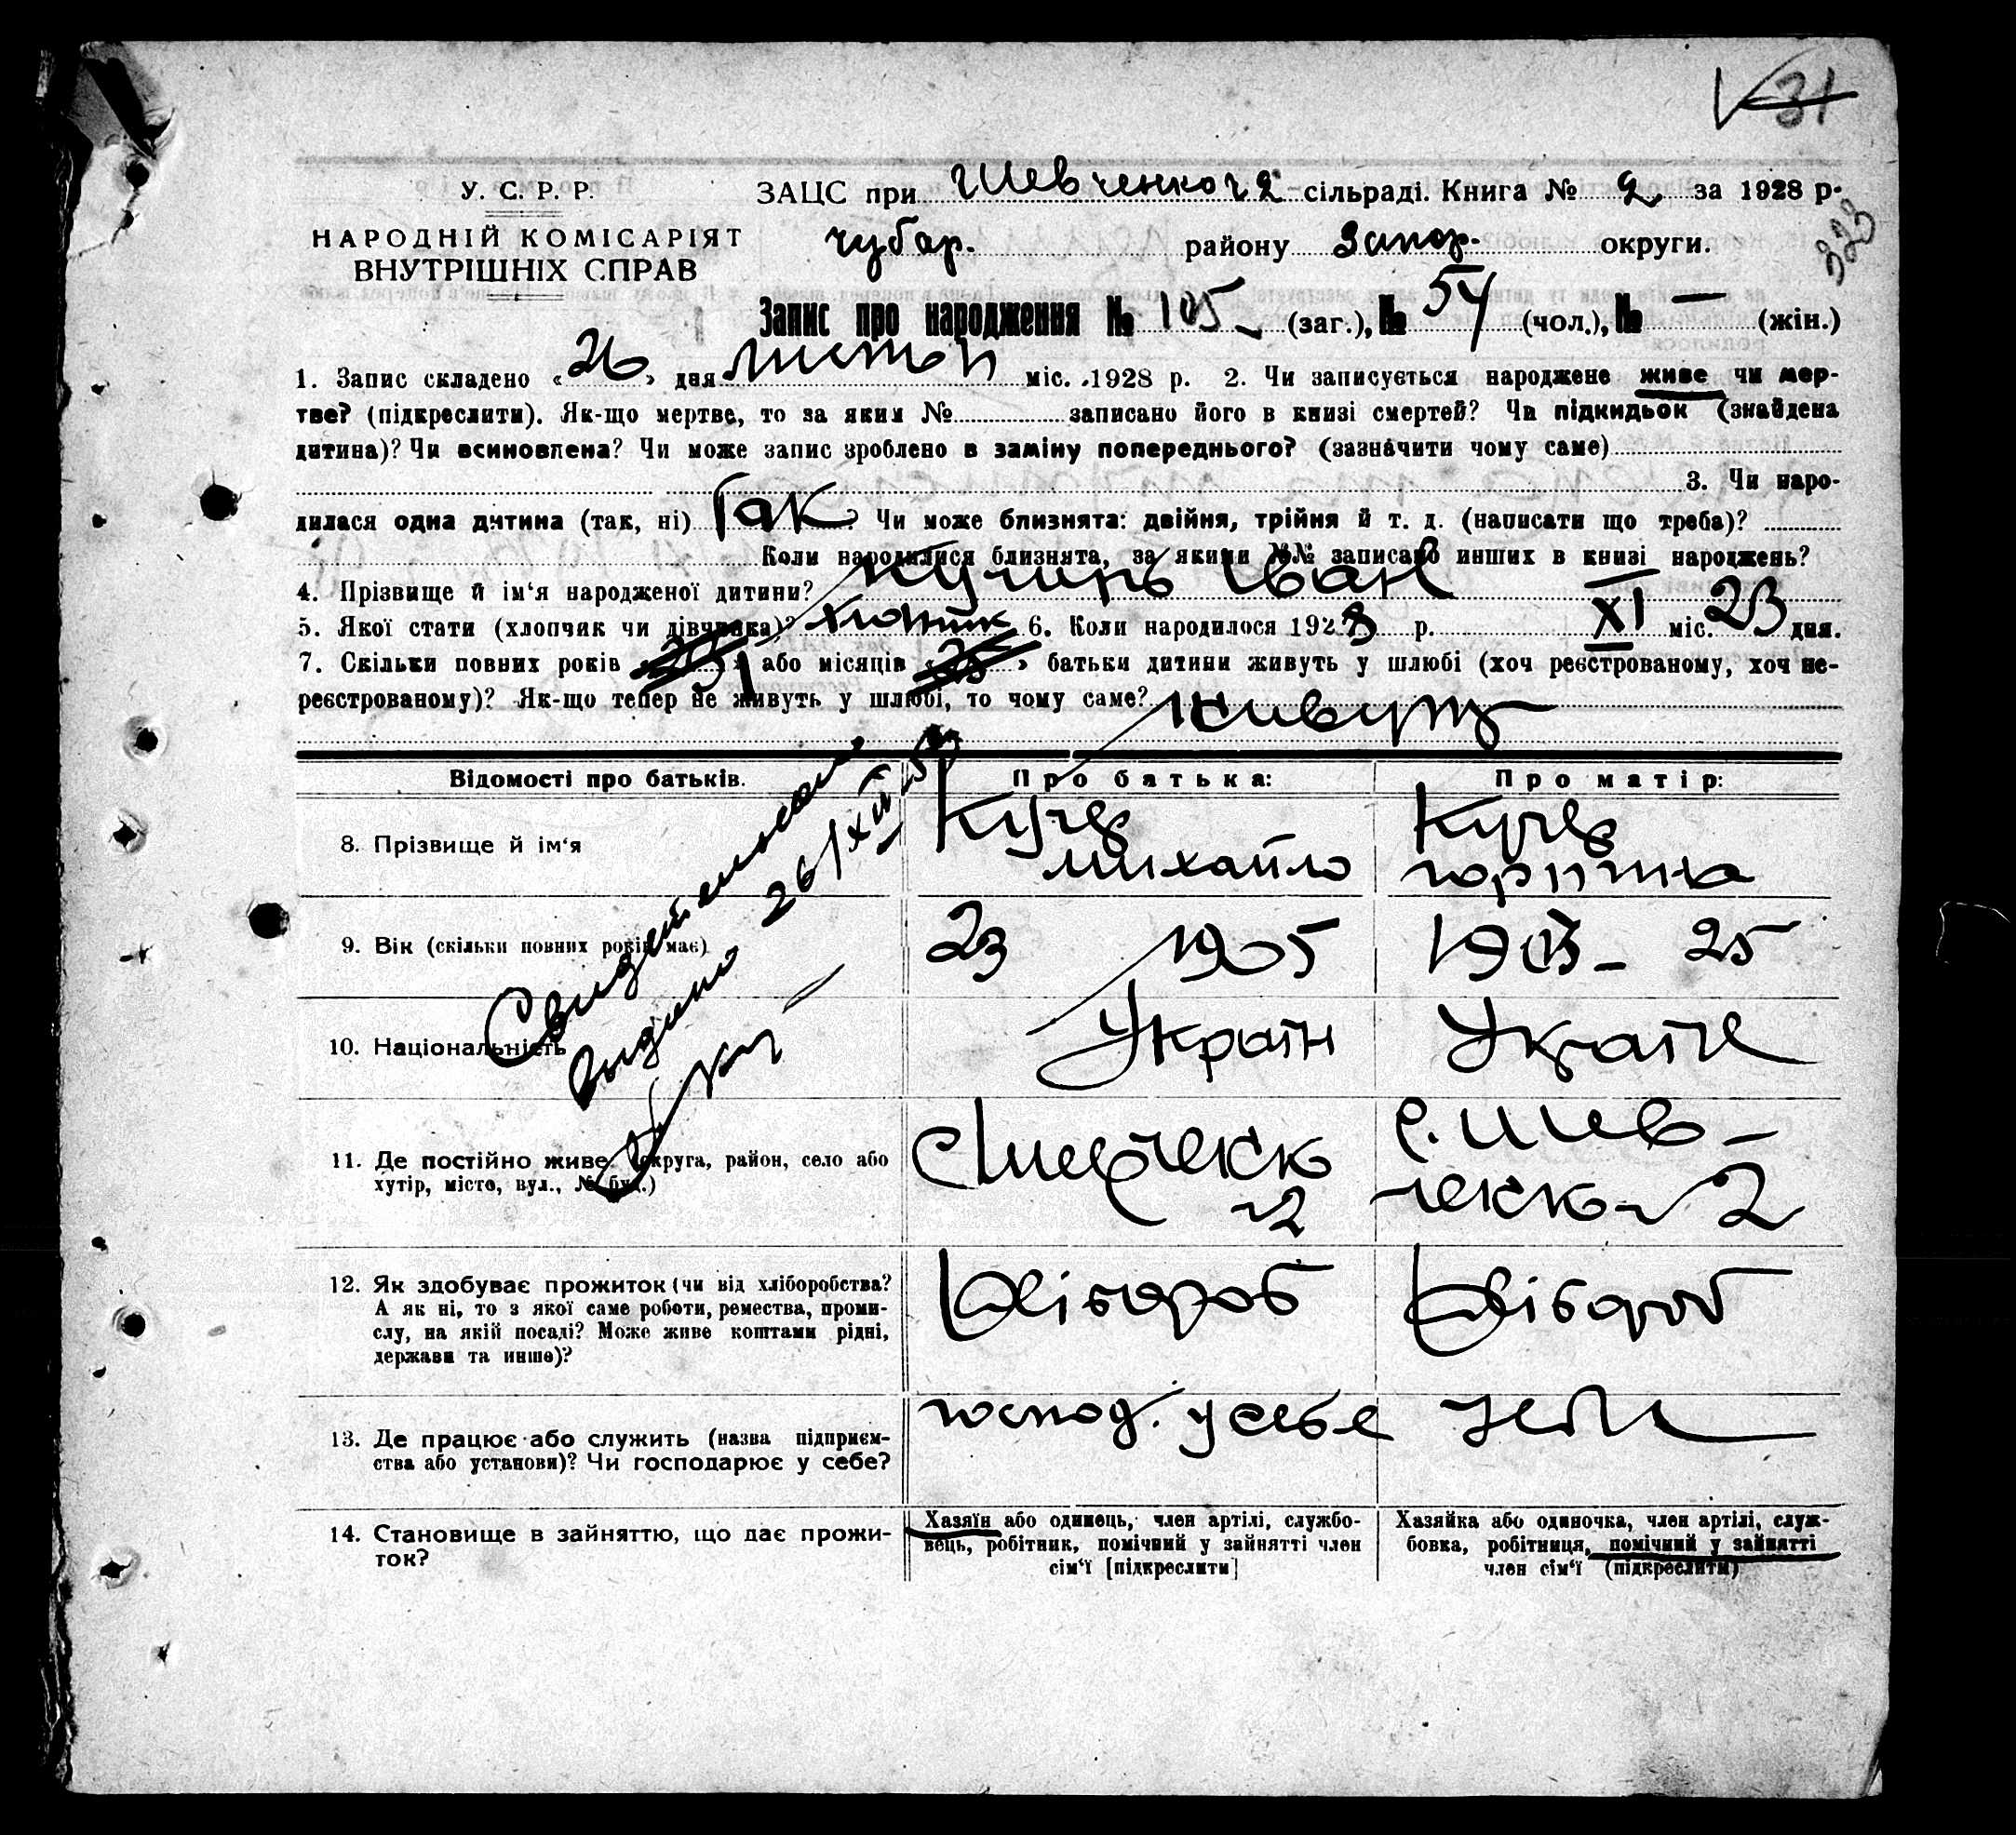 31
У. С. Р. Р.
НАРОДНІЙ КОМІСАРІЯТ
ВНУТРІШНІХ СПРАВ
ЗАЦС при Шевченко №2 сільраді. Книга № 2 за 1928 р.
чубар. району Запор. округи.
323
Запис про народження № 105 (заг.), № 54 (чол.), № — (жін.)
1. Запис складено « 26 » дня листоп міс. 1928 р. 2. Чи записується народжене живе чи мер-
тве? (підкреслити). Як-що мертве, то за яким № записано його в книзі смертей? Чи підкидьок (знайдена
дитина)? Чи всиновлена? Чи може запис зроблено в заміну попереднього? (зазначити чому саме)
3. Чи наро-
дилася одна дитина (так, ні) Так Чи може близнята: двійня, трійня й т. д. (написати що треба)?
Коли народилися близнята, за якими №№ записано инших в книзі народжень?
4. Прізвище й ім'я народженої дитини? Іван
5. Якої стати (хлопчик чи дівчинка)? хлопчик 6. Коли народилося 1928 р. XI міс. 23 дня.
7. Скільки повних років « » або місяців « » батьки дитини живуть у шлюбі (хоч реєстрованому, хоч не-
реєстрованому)? Як-що тепер не живуть у шлюбі, то чому саме? живуть
Відомості про батьків. Про батька: Про матір:
8. Прізвище й ім'я
Михайло
9. Вік (скільки повних років має) 23 1905 1903 - 25
10. Національність Україн Україн
11. Де постійно живе (округа, район, село або
хутір, місто, вул., № буд.)
с. Шевченк №2 с. Шев-
ченк №2
12. Як здобуває прожиток (чи від хліборобства?
А як ні, то з якої саме роботи, ремества, проми-
слу, на якій посаді? Може живе коштами рідні,
держави та инше)?
Хлібороб Хлібороб
13. Де працює або служить (назва підприєм-
ства або установи)? Чи господарює у себе?
господ. у себе
14. Становище в зайняттю, що дає прожи-
ток?
Хазяїн або одинець, член артілі, службо-
вець, робітник, помічний у зайнятті член
сім'ї [підкреслити]
Хазяйка або одиночка, член артілі, служ-
бовка, робітниця, помічний у зайнятті
член сім'ї (підкреслити)
Свидетельство
выдано 26/XII